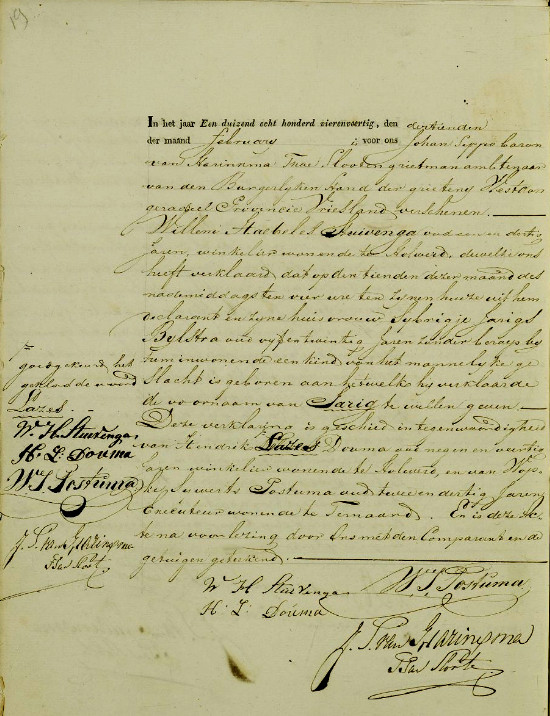 19
In het jaar Een duizend acht honderd vierenveertig, den dertienden
der maand February voor ons Johan Seppo baron
van Harinxma Thoe Slooten grietman ambtenaar
van den Burgerlyken stand der grieteny Westdon-
geradeel Provincie Vriesland, verschenen.
Willem Haebeles Stuivenga oud een en dertig
Jaren, winkelier wonende te Holwerd, dewelke ons
heeft verklaard, dat op den tienden dezer maand des
nademiddags ten vier ure ten zynen huize uit hem
declarant en zyne huisvrouw Sybrigje Jarigs
Bylstra oud vyf en twintig Jaren zonder beroep by
hem inwonende een kind van het mannelyke ge-
slacht is geboren aan hetwelke hy verklaarde
de voornaam van Jarig te willen geven.
Deze verklaring is geschied in tegenwoordigheid
van Hendrik Lazes Douma oud negen en veertig
Jaren winkelier wonende te Holwerd, en van Wop-
ke Sywerts Postuma oud twee en dertig Jaren,
Executeur wonende te Ternaard. En is deze Ac-
te na voorlezing door Ons met den Comparant en de
getuigen geteekend.
goedgekeurd het
woord
Lazes.
W H Stuivenga
H: L: Douma
W S Postuma
J. S. van Harinxma
Thoe Sloot
W H Stuivenga
H: L: Douma
W S Postuma
J. S. van Harinxma
Thoe Sloote